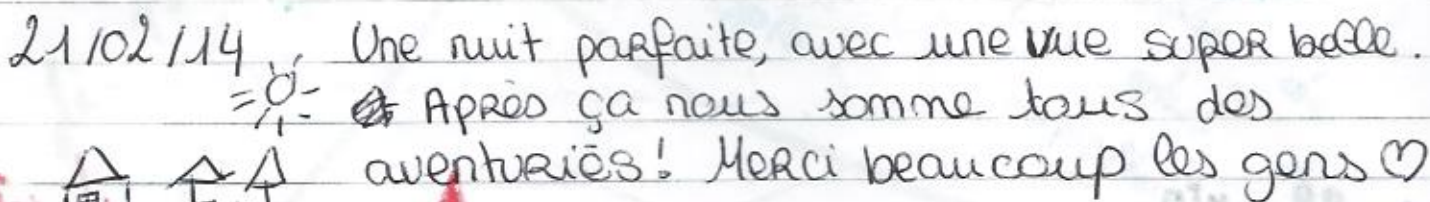 21/02/14 Une nuit parfaite, avec une vue super belle.
Après ça nous somme tous des
aventuriés! Merci beaucoup les gens ♡